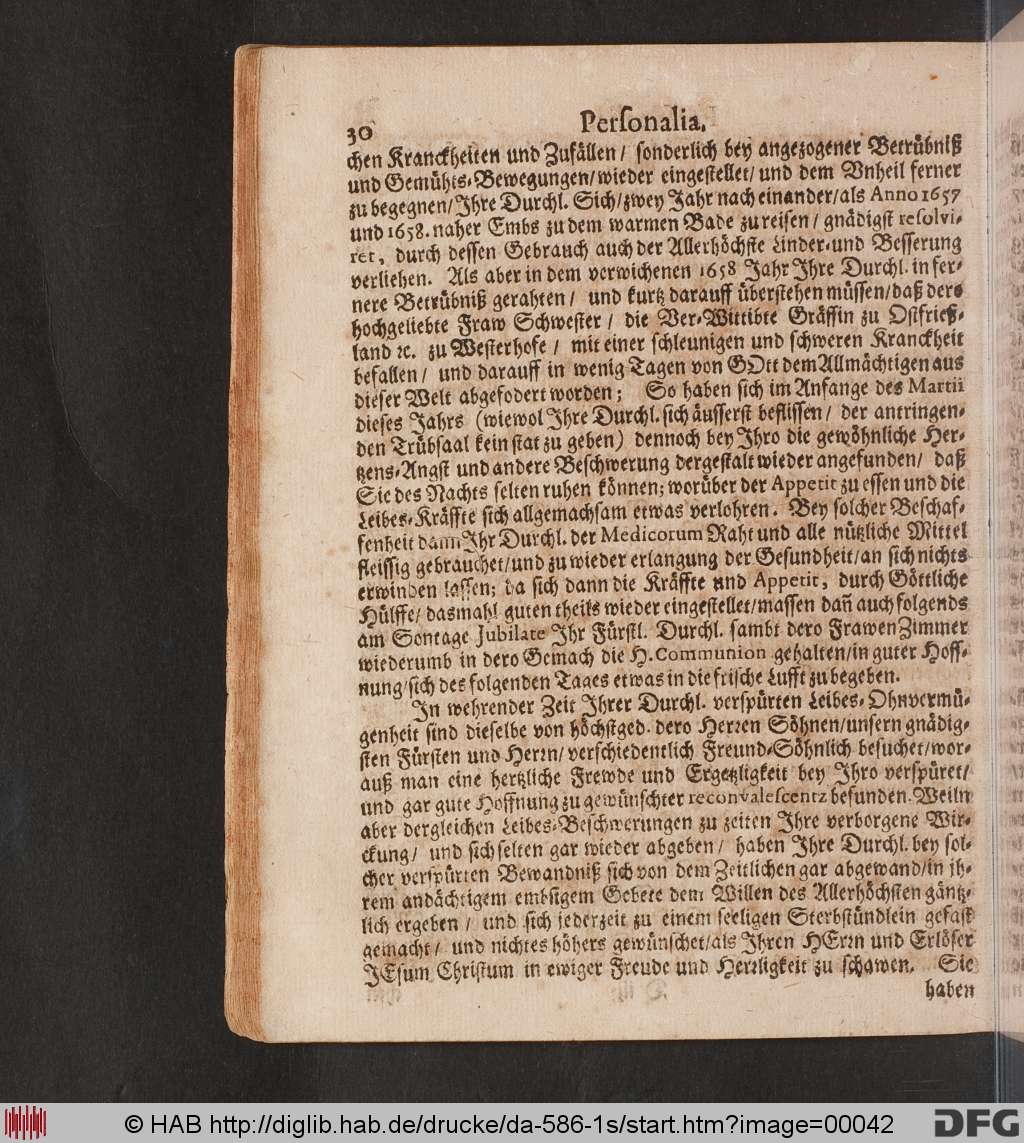 30
Personalia.
chen Kranckheiten und Zufällen / sonderlich bey angezogener Betrübniß
und Gemühts-Bewegungen/ wieder eingestellet/ und dem Vnheil ferner
zu begegnen/ Ihre Durchl. Sich/ zwey Jahr nach einander/ als Anno 1657
und 1658. naher Embs zu dem warmen Bade zu reisen / gnädigst resolvi-
ret, durch dessen Gebrauch auch der Allerhöchste Linder- und Besserung
verliehen. Als aber in dem verwichenen 1658 Jahr Ihre Durchl. in fer-
nere Betrübniß gerahten / und kurtz darauff überstehen müssen/ daß dero
hochgeliebte Fraw Schwester / die Ver-Wittibte Gräffin zu Ostfrieß-
land ꝛc. zu Westerhofe / mit einer schleunigen und schweren Kranckheit
befallen / und darauff in wenig Tagen von GOtt dem Allmächtigen aus
dieser Welt abgefodert worden; So haben sich im Anfange des Martii
dieses Jahrs (wiewol Ihre Durchl. sich äusserst beflissen / der antringen-
den Trübsaal kein stat zu geben) dennoch bey Ihro die gewöhnliche Her-
tzens-Angst und andere Beschwerung dergestalt wieder angefunden/ daß
Sie des Nachts selten ruhen können; worüber der Appetit zu essen und die
Leibes-Kräffte sich allgemachsam etwas verlohren. Bey solcher Beschaf-
fenheit dann Ihr Durchl. der Medicorum Raht und alle nützliche Mittel
fleissig gebrauchet/ und zu wieder erlangung der Gesundheit/ an sich nichts
erwinden lassen; da sich dann die Kräffte und Appetit, durch Göttliche
Hülffe/ dasmahl guten theils wieder eingestellet/ massen dañ auch folgends
am Sontage Jubilate Ihr Fürstl. Durchl. sambt dero FrawenZimmer
wiederumb in dero Gemach die H. Communion gehalten/ in guter Hoff-
nung/ sich des folgenden Tages etwas in die frische Lufft zu begeben.
In wehrender Zeit Ihrer Durchl. verspürten Leibes-Ohnvermü-
genheit sind dieselbe von höchstged. dero Herren Söhnen/ unsern gnädig-
sten Fürsten und Herrn/ verschiedentlich Freund-Söhnlich besuchet/ wor-
auß man eine hertzliche Frewde und Ergetzligkeit bey Ihro verspüret/
und gar gute Hoffnung zu gewünschter reconvalescentz befunden. Weiln
aber dergleichen Leibes-Beschwerungen zu zeiten Ihre verborgene Wir-
ckung / und sich selten gar wieder abgeben / haben Ihre Durchl. bey sol-
cher verspürten Bewandniß sich von dem Zeitlichen gar abgewand/ in jh-
rem andächtigem embsigem Gebete dem Willen des Allerhöchsten gäntz-
lich ergeben / und sich jederzeit zu einem seeligen Sterbstündlein gefast
gemacht / und nichtes höhers gewünschet/ als Ihren HErrn und Erlöser
JEsum Christum in ewiger Freude und Herrligkeit zu schawen. Sie
haben
© HAB http://diglib.hab.de/drucke/da-586-1s/start.htm?image=00042
DFG